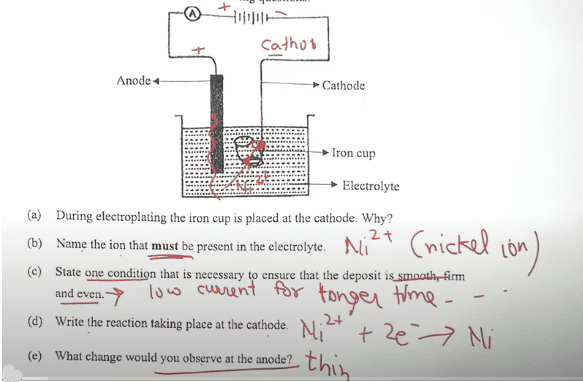 A
+ −
+
Cathod
Anode
Cathode
Iron cup
Electrolyte
Ni²⁺
(a) During electroplating the iron cup is placed at the cathode. Why?
(b) Name the ion that must be present in the electrolyte. Ni²⁺ (nickel ion)
(c) State one condition that is necessary to ensure that the deposit is smooth, firm
and even. → low current for longer time - - -
(d) Write the reaction taking place at the cathode. Ni²⁺ + 2e⁻ → Ni
(e) What change would you observe at the anode? thin